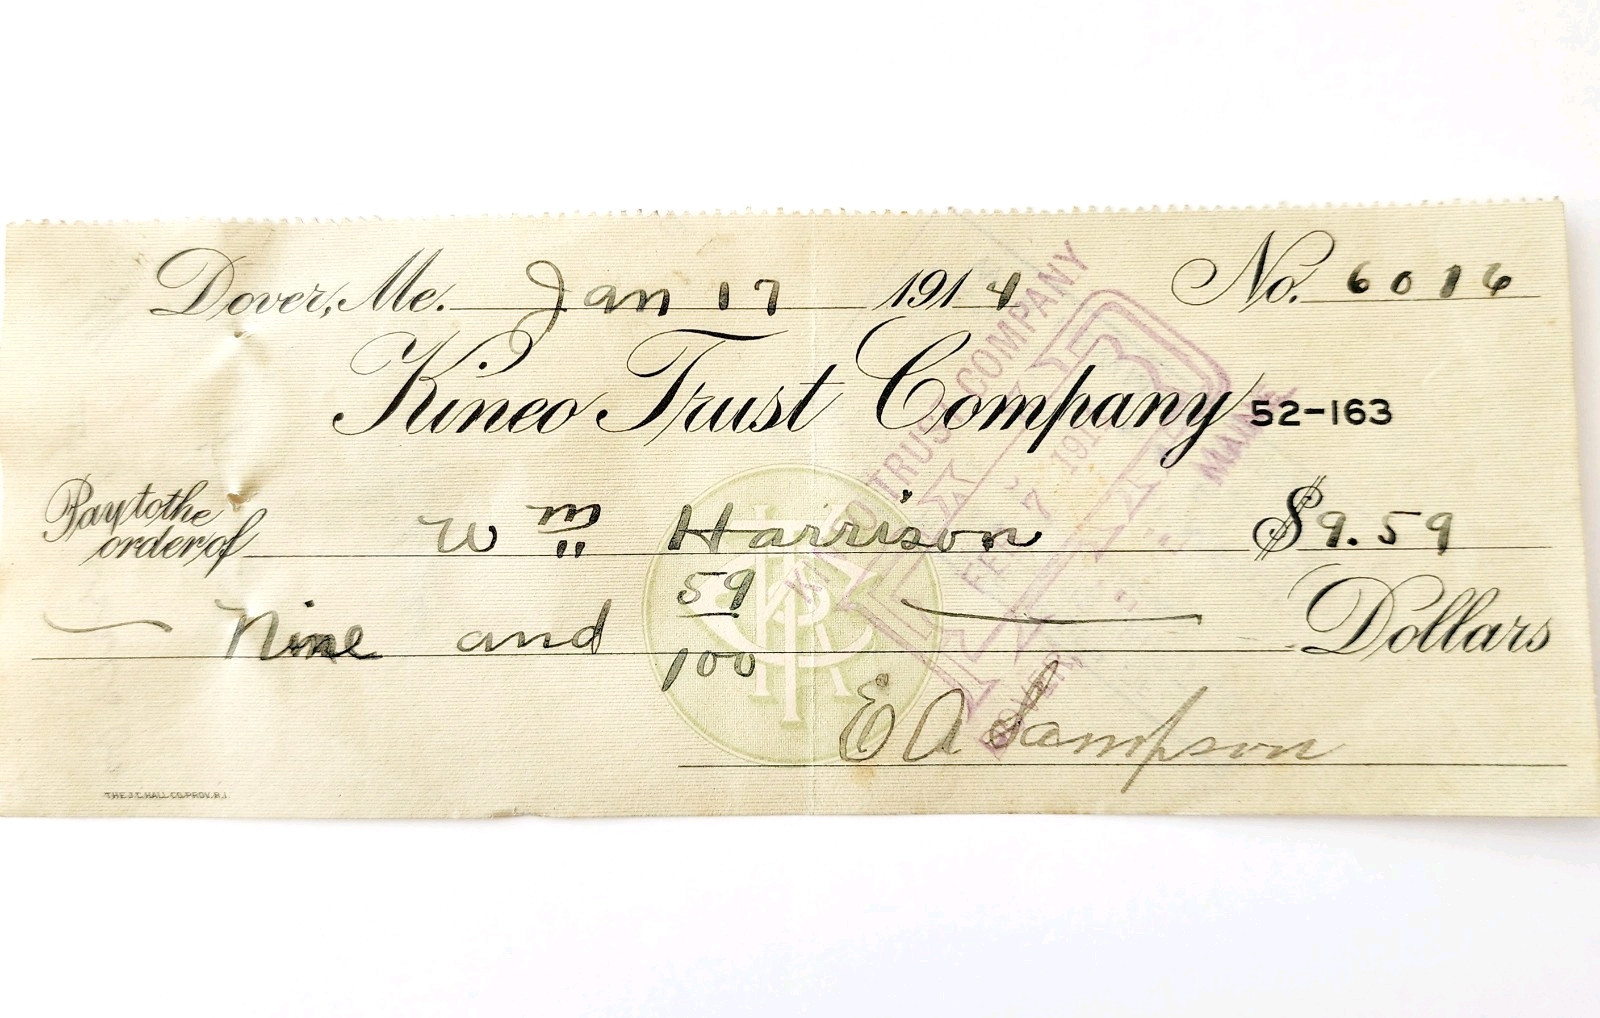 Dover, Me. Jan 17 1914 No. 6016
Kineo Trust Company 52-163
Pay to the order of Wm Harrison $9.59
Nine and 59/100 Dollars
E A Sampson
THE J.C. HALL CO. PROV. R.I.
KINEO TRUST COMPANY
PAID
FEB 7 191
DOVER, MAINE